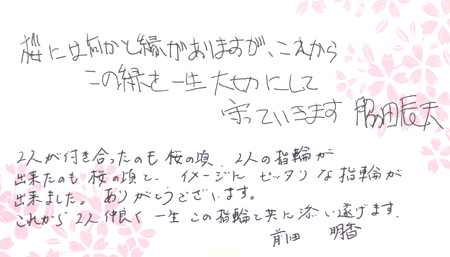 桜には何かと縁がありますが、これから
この縁を一生大切にして
守っていきます 脇田辰夫
2人が付き合ったのも桜の頃、2人の指輪が
出来たのも桜の頃と、イメージにピッタリな指輪が
出来ました。ありがとうございます。
これから2人仲良く一生この指輪と共に添い遂げます。
前田 明香